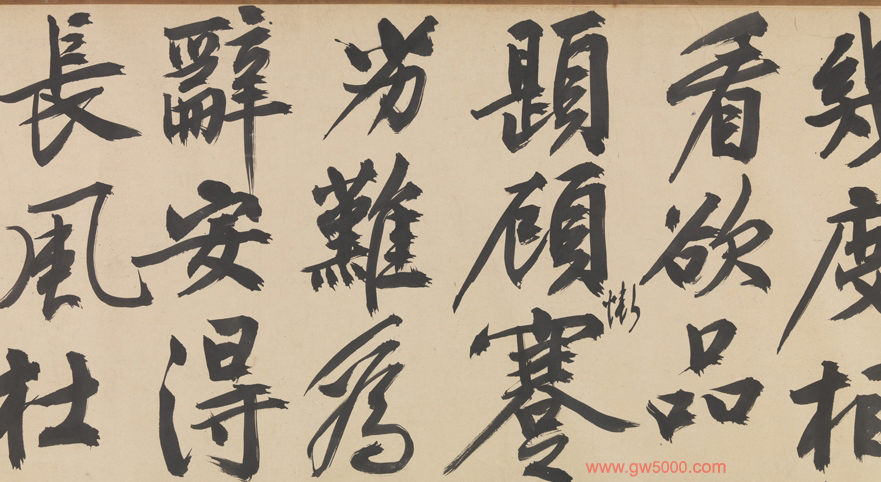 幾度相
看欲品
題顧慚蹇
劣難為
辭安得
長風杜
www.gw5000.com